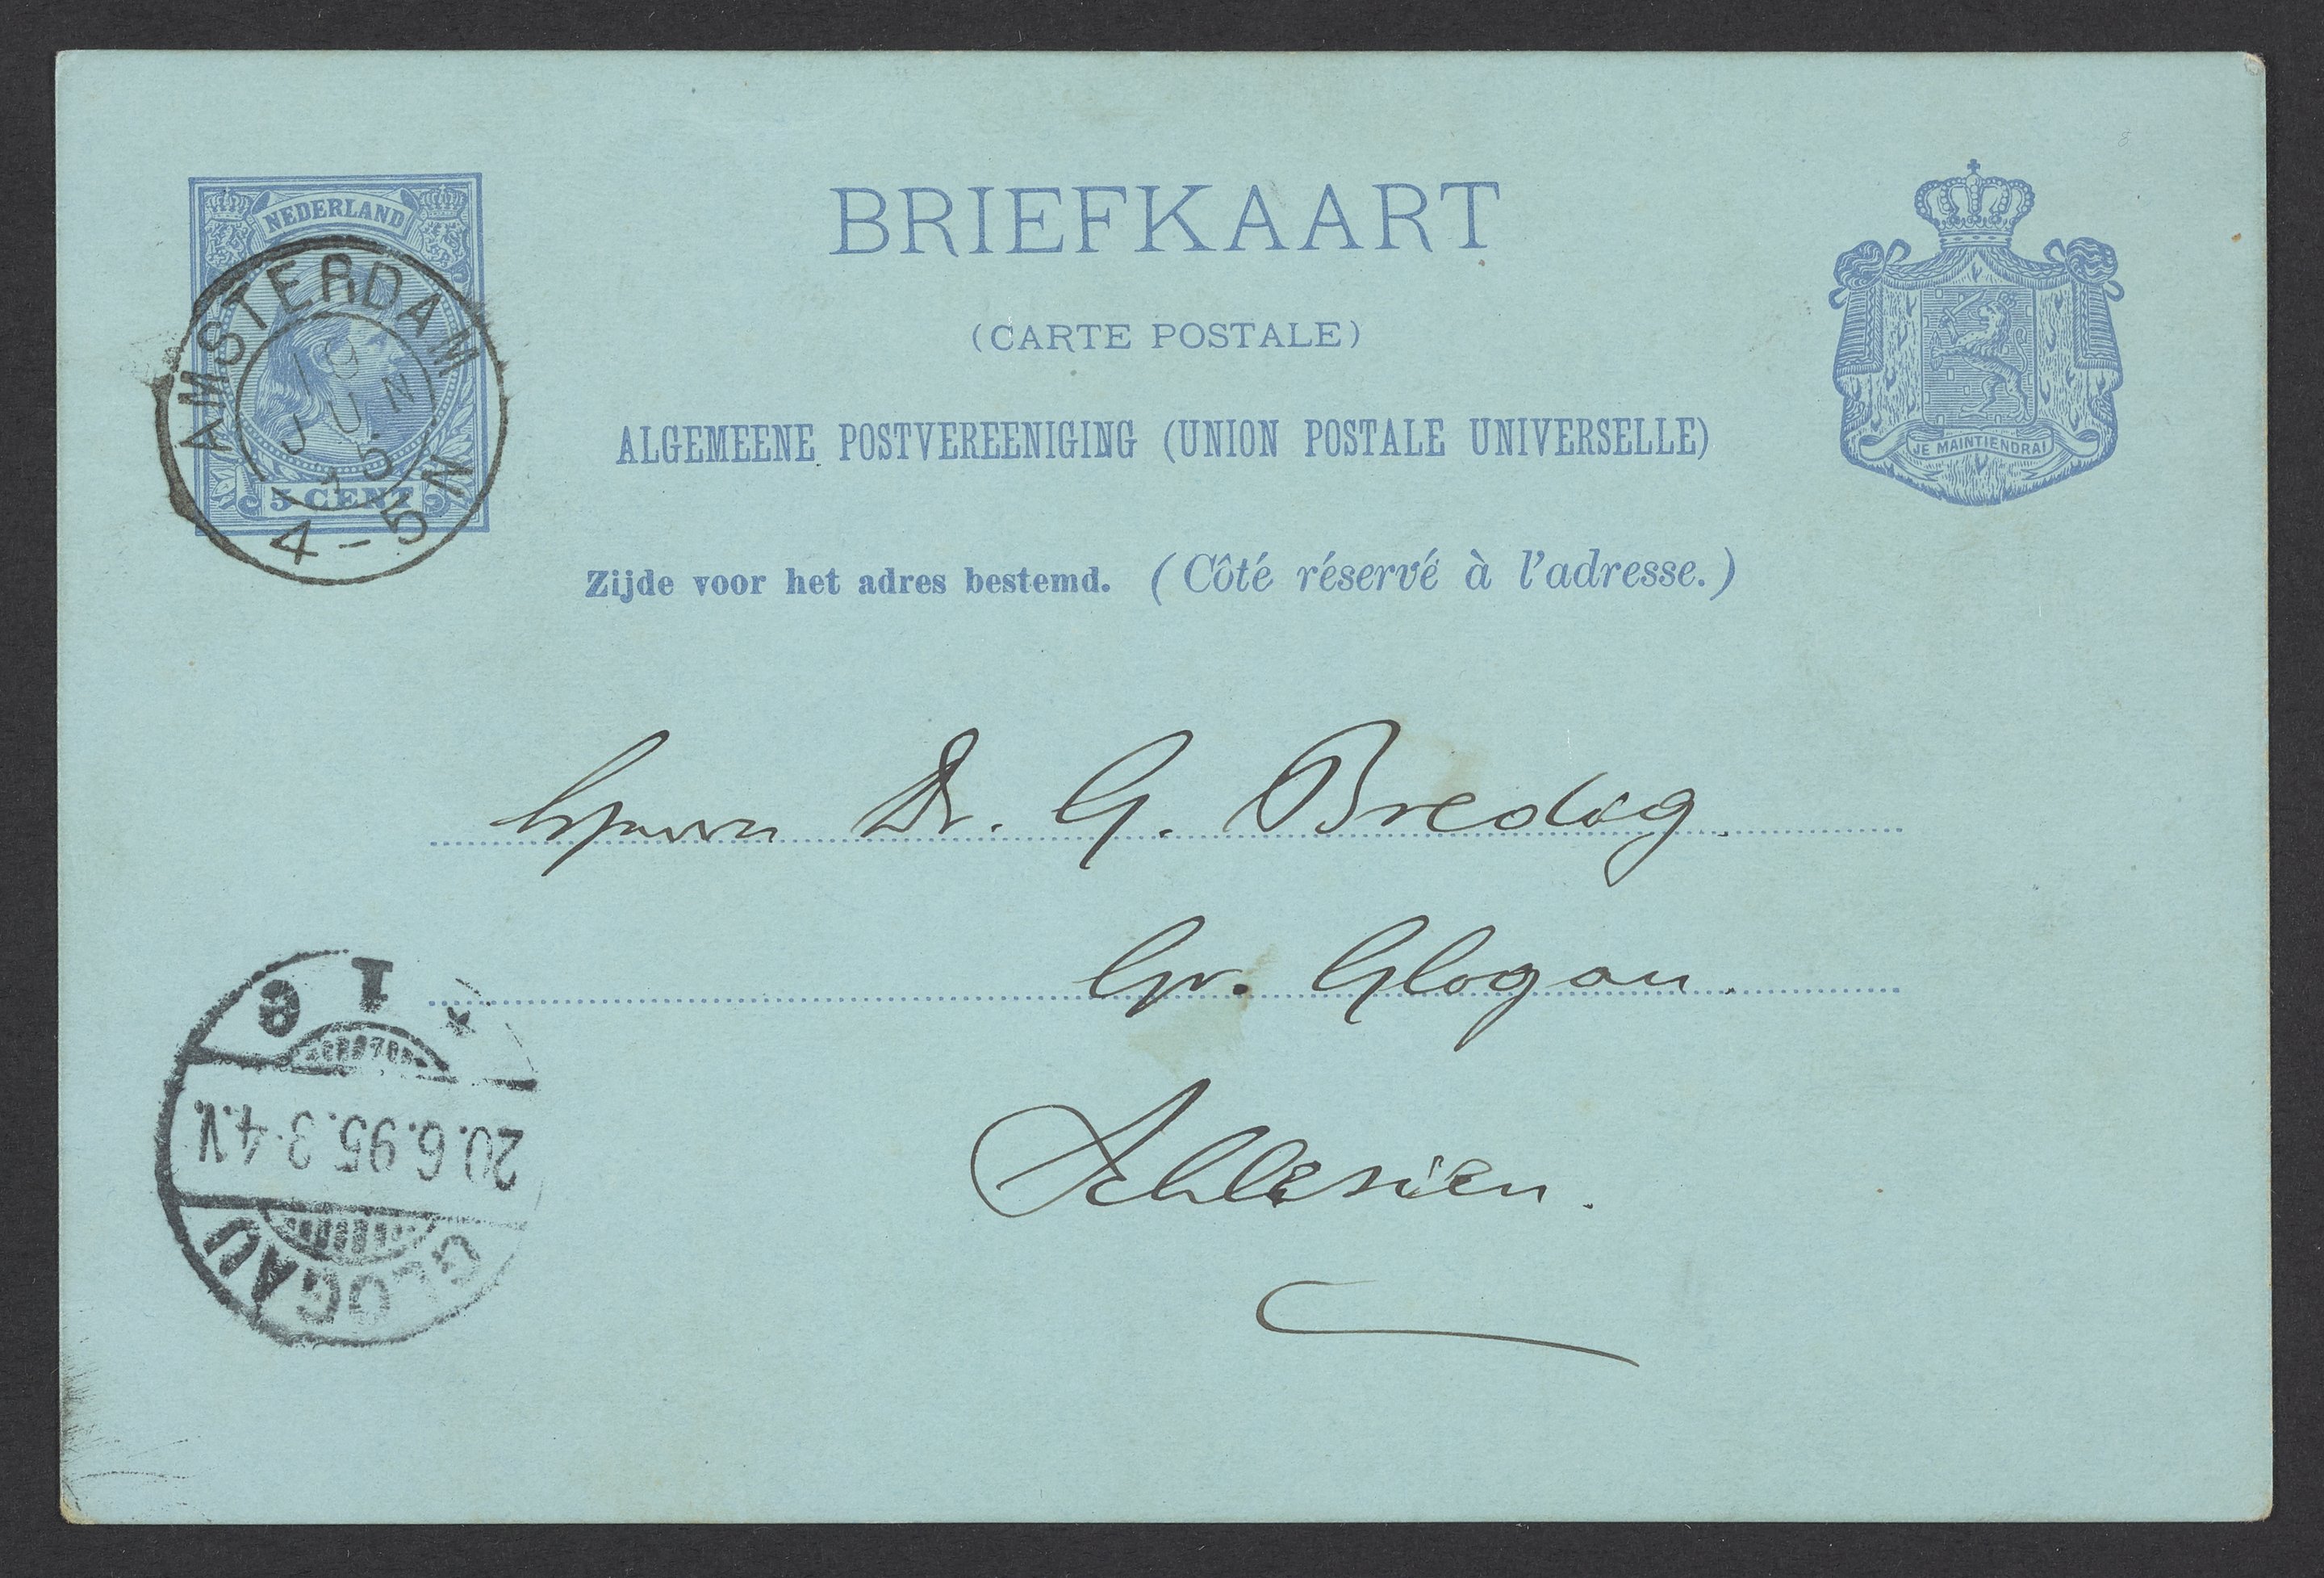 NEDERLAND
5 CENT
AMSTERDAM
19
JUN
95
4-5N
BRIEFKAART
(CARTE POSTALE)
ALGEMEENE POSTVEREENIGING (UNION POSTALE UNIVERSELLE)
Zijde voor het adres bestemd. (Côté réservé à l'adresse.)
JE MAINTIENDRAI
Herrn Dr. G. Bredig
Gr. Glogau.
Schlesien.
GLOGAU
20.6.95.3-4.V.
* 1 e